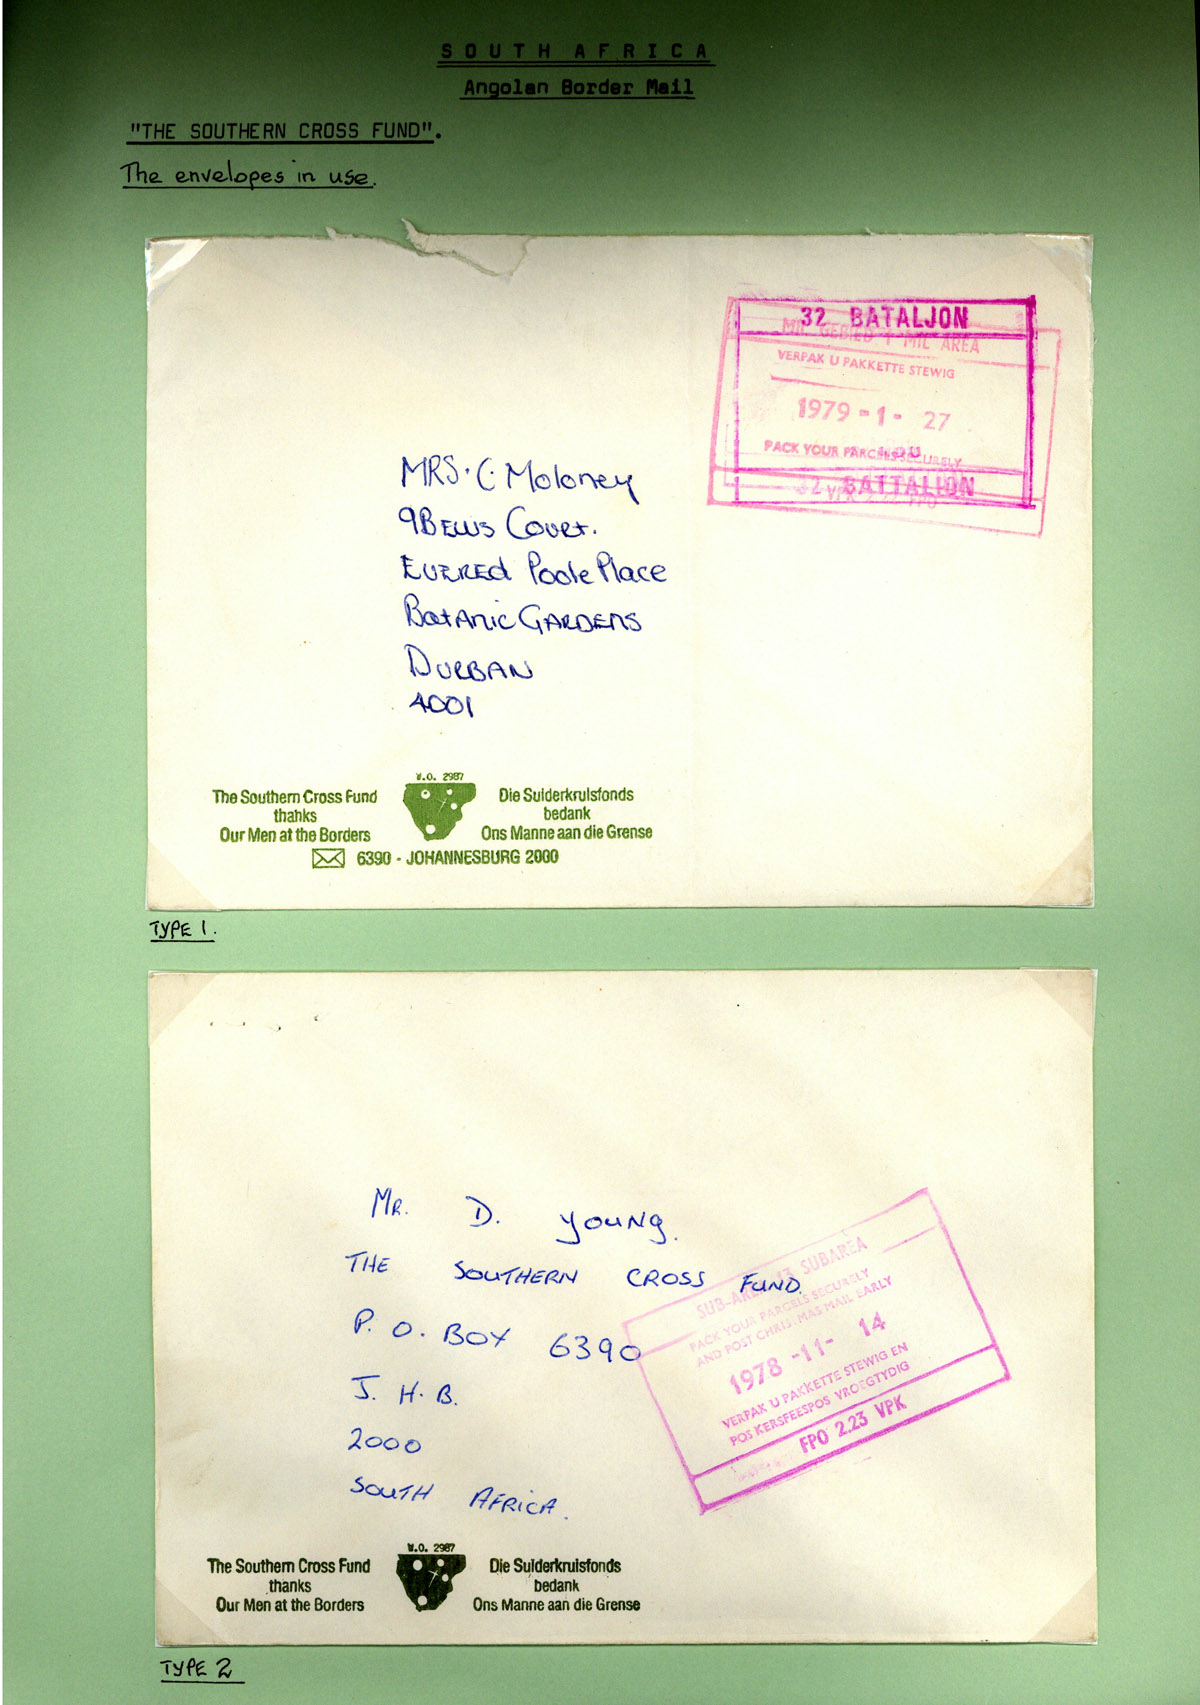 SOUTH AFRICA
Angolan Border Mail
"THE SOUTHERN CROSS FUND".
The envelopes in use.
32 BATALJON
MIL GEBIED 1 MIL AREA
VERPAK U PAKKETTE STEWIG
1979-1-27
PACK YOUR PARCELS SECURELY
32 BATTALION
VPK FPO
MRS. C. Moloney
9 BEWS COURT.
EVERED Poole Place
BOTANIC GARDENS
DURBAN
4001
W.O. 2987
The Southern Cross Fund
thanks
Our Men at the Borders
Die Suiderkruisfonds
bedank
Ons Manne aan die Grense
6390 - JOHANNESBURG 2000
TYPE 1.
MR. D. YOUNG.
THE SOUTHERN CROSS FUND.
P.O. BOX 6390
J.H.B.
2000
SOUTH AFRICA.
SUB-AREA 13 SUBAREA
PACK YOUR PARCELS SECURELY
AND POST CHRISTMAS MAIL EARLY
1978-11-14
VERPAK U PAKKETTE STEWIG EN
POS KERSFEESPOS VROEGTYDIG
FPO 2.23 VPK
W.O. 2987
The Southern Cross Fund
thanks
Our Men at the Borders
Die Suiderkruisfonds
bedank
Ons Manne aan die Grense
TYPE 2